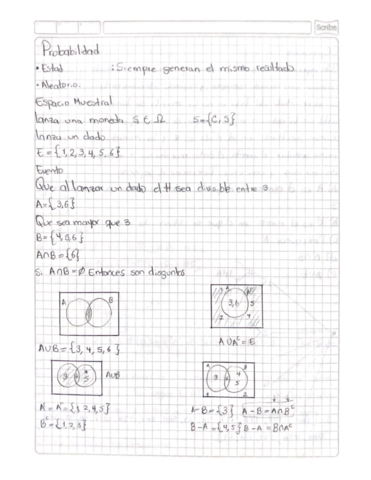 Scribe
Probabilidad
• Estat : Siempre generan el mismo resultado
• Aleatorio.
Espacio Muestral
lanza una moneda S ∈ Ω S={C,S}
lanza un dado
E={1,2,3,4,5,6}
Evento
Que al lanzar un dado el # sea divisible entre 3
A={3,6}
Que sea mayor que 3
B={4,5,6}
A∩B={6}
Si A∩B=∅ Entonces son disjuntos
A B
3,6 5
A∪B={3,4,5,6} A∪Aᶜ=E
A∪B
A B
3 4
5
A'=Aᶜ={1,2,4,5} A-B={3} A-B=A∩Bᶜ
Bᶜ={1,2,3} B-A={4,5} B-A=B∩Aᶜ